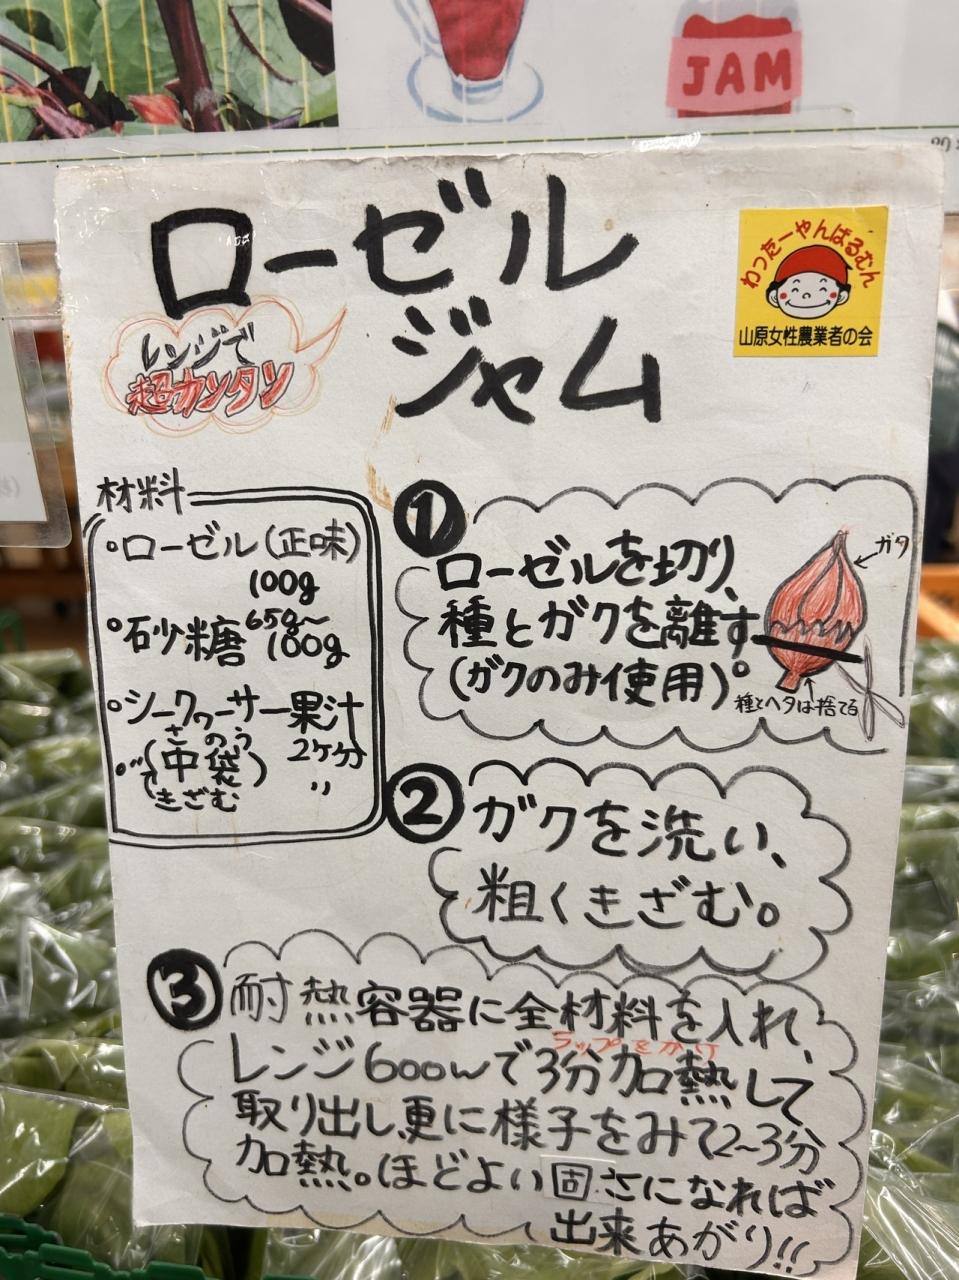 JAM
ローゼル
ジャム
わったーやんばるむん
山原女性農業者の会
レンジで
超カンタン
材料
・ローゼル(正味)
100g
・砂糖 65g〜100g
・シークヮーサー果汁
2ケ分
・〃(中袋) 〃
さのう
きざむ
①
ローゼルを切り、
種とガクを離す
(ガクのみ使用)。
ガク
種とヘタは捨てる
②
ガクを洗い、
粗くきざむ。
③
耐熱容器に全材料を入れ、
ラップをかけ
レンジ600wで3分加熱して
取り出し、更に様子をみて2〜3分
加熱。ほどよい固さになれば
出来あがり!!